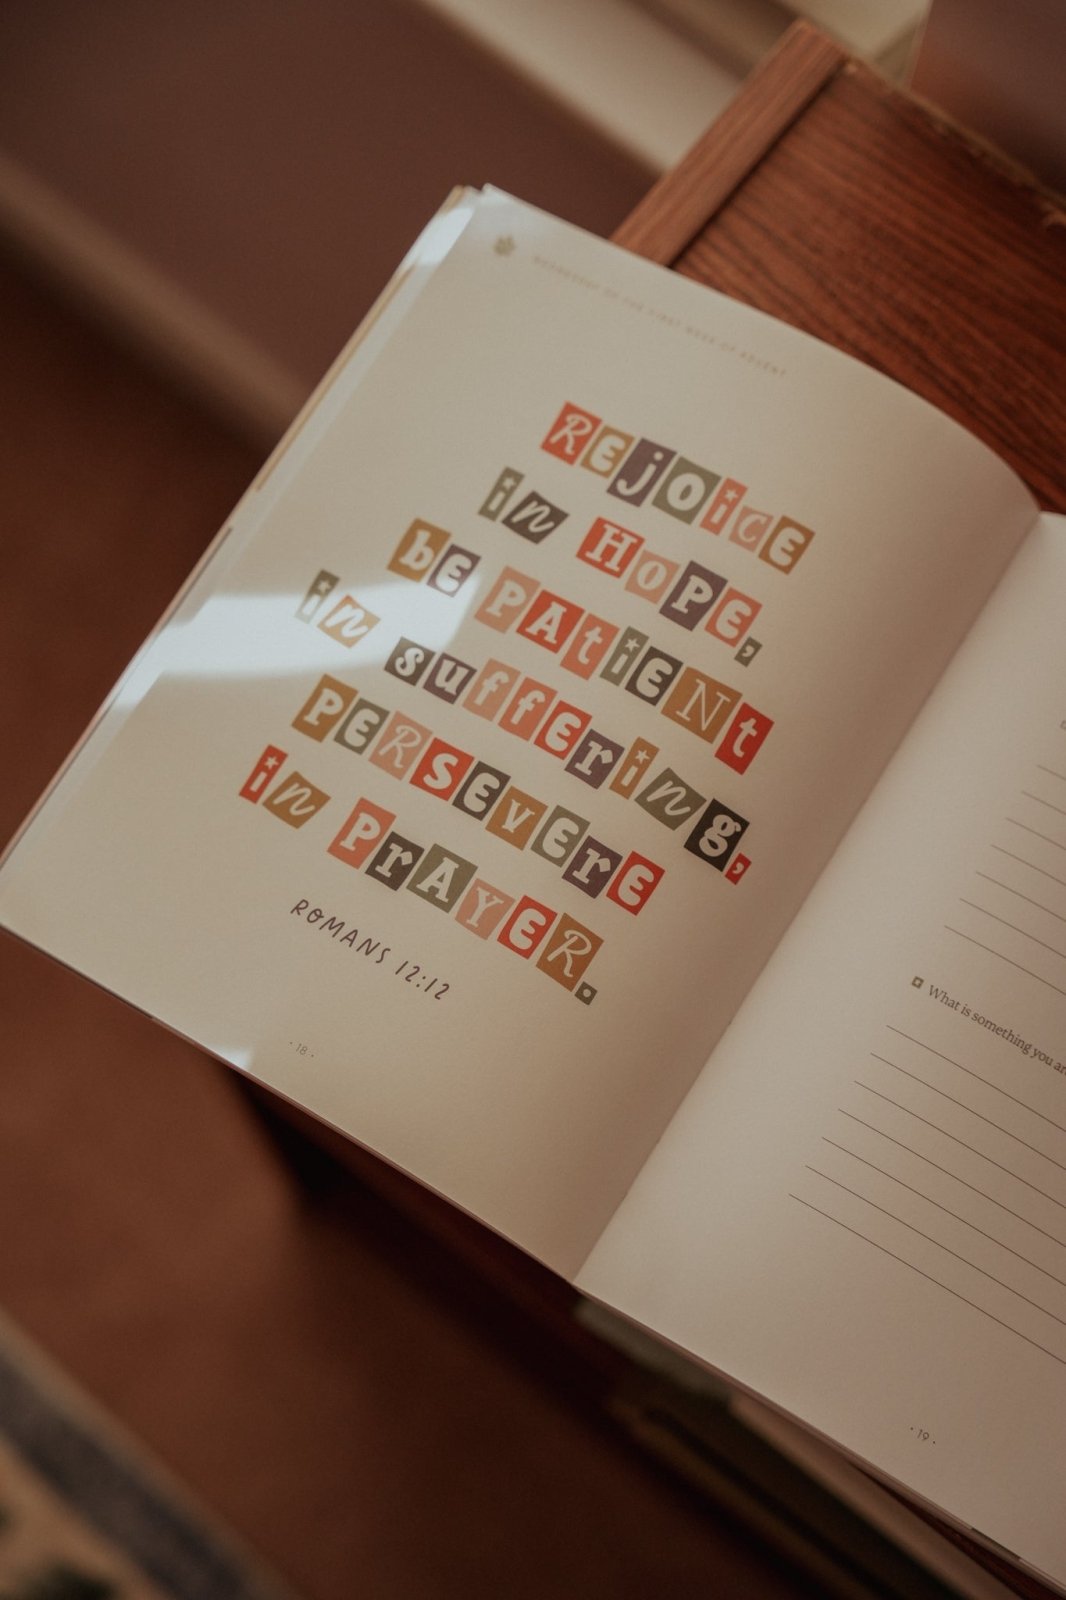 WEDNESDAY OF THE FIRST WEEK OF ADVENT
REjoicE
in HoPE,
bE PAtiENt
in suffEring,
PERSEVERE
in PrAYER.
ROMANS 12:12
· 18 ·
What is something you
· 19 ·